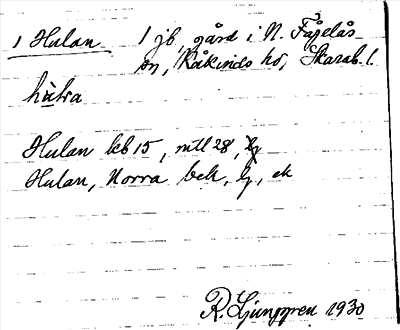 1 Hulan 1 jb, gård i N. Fågelås
sn, Kåkinds hd, Skarab. l.
hùlra
Hulan kb 15, mtl 28, lg
Hulan, Norra bek, lg, ek
R. Ljunggren 1930